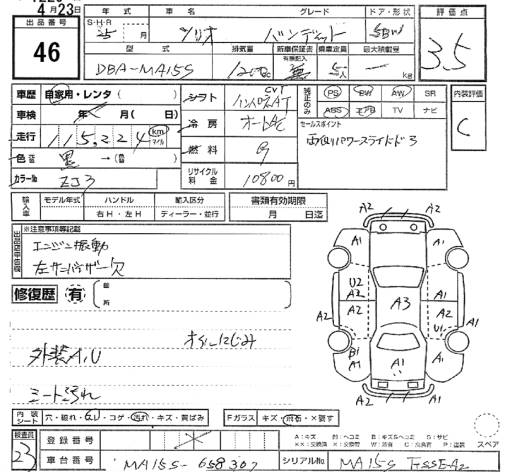 4月23日
出品番号
46
年式 車名 グレード ドア・形状 評価点
S・H・R
25 年 月 ソリオ バンディット 5BW
3.5
型式 排気量 新車保証書 乗車定員 最大積載量
DBA-MA15S 1200cc 5人 kg
車歴 自家用・レンタ
シフト CVT インパネAT
PS PW AW SR
ABS エアB TV ナビ
内装評価
C
車検 年 月(日)
冷房 オートAC
セールスポイント
走行 115,224 km マイル
両側パワースライドドア
燃料 G
色替 黒 →
カラーNo ZJ3
リサイクル料金 10800円
輸入車 モデル年式 ハンドル 輸入区分 書類有効期限
右H・左H ディーラー・並行 月 日迄
※注意事項等記載
エンジン振動
左サンバイザー欠
修復歴 有 箇所
A2
A2 A2
A1 A1
U2
A2 A2
A2 A3 A2
U1
B1
A1 A1 A1
A2
オイルにじみ
外装A,U
シート汚れ
内装シート 穴・破れ・ コゲ・汚れ・キズ・黄ばみ Fガラス キズ・ ・×要す
スペア
検査員
23
登録番号
車台番号 MA15S-658307 シリアルNo. MA15S